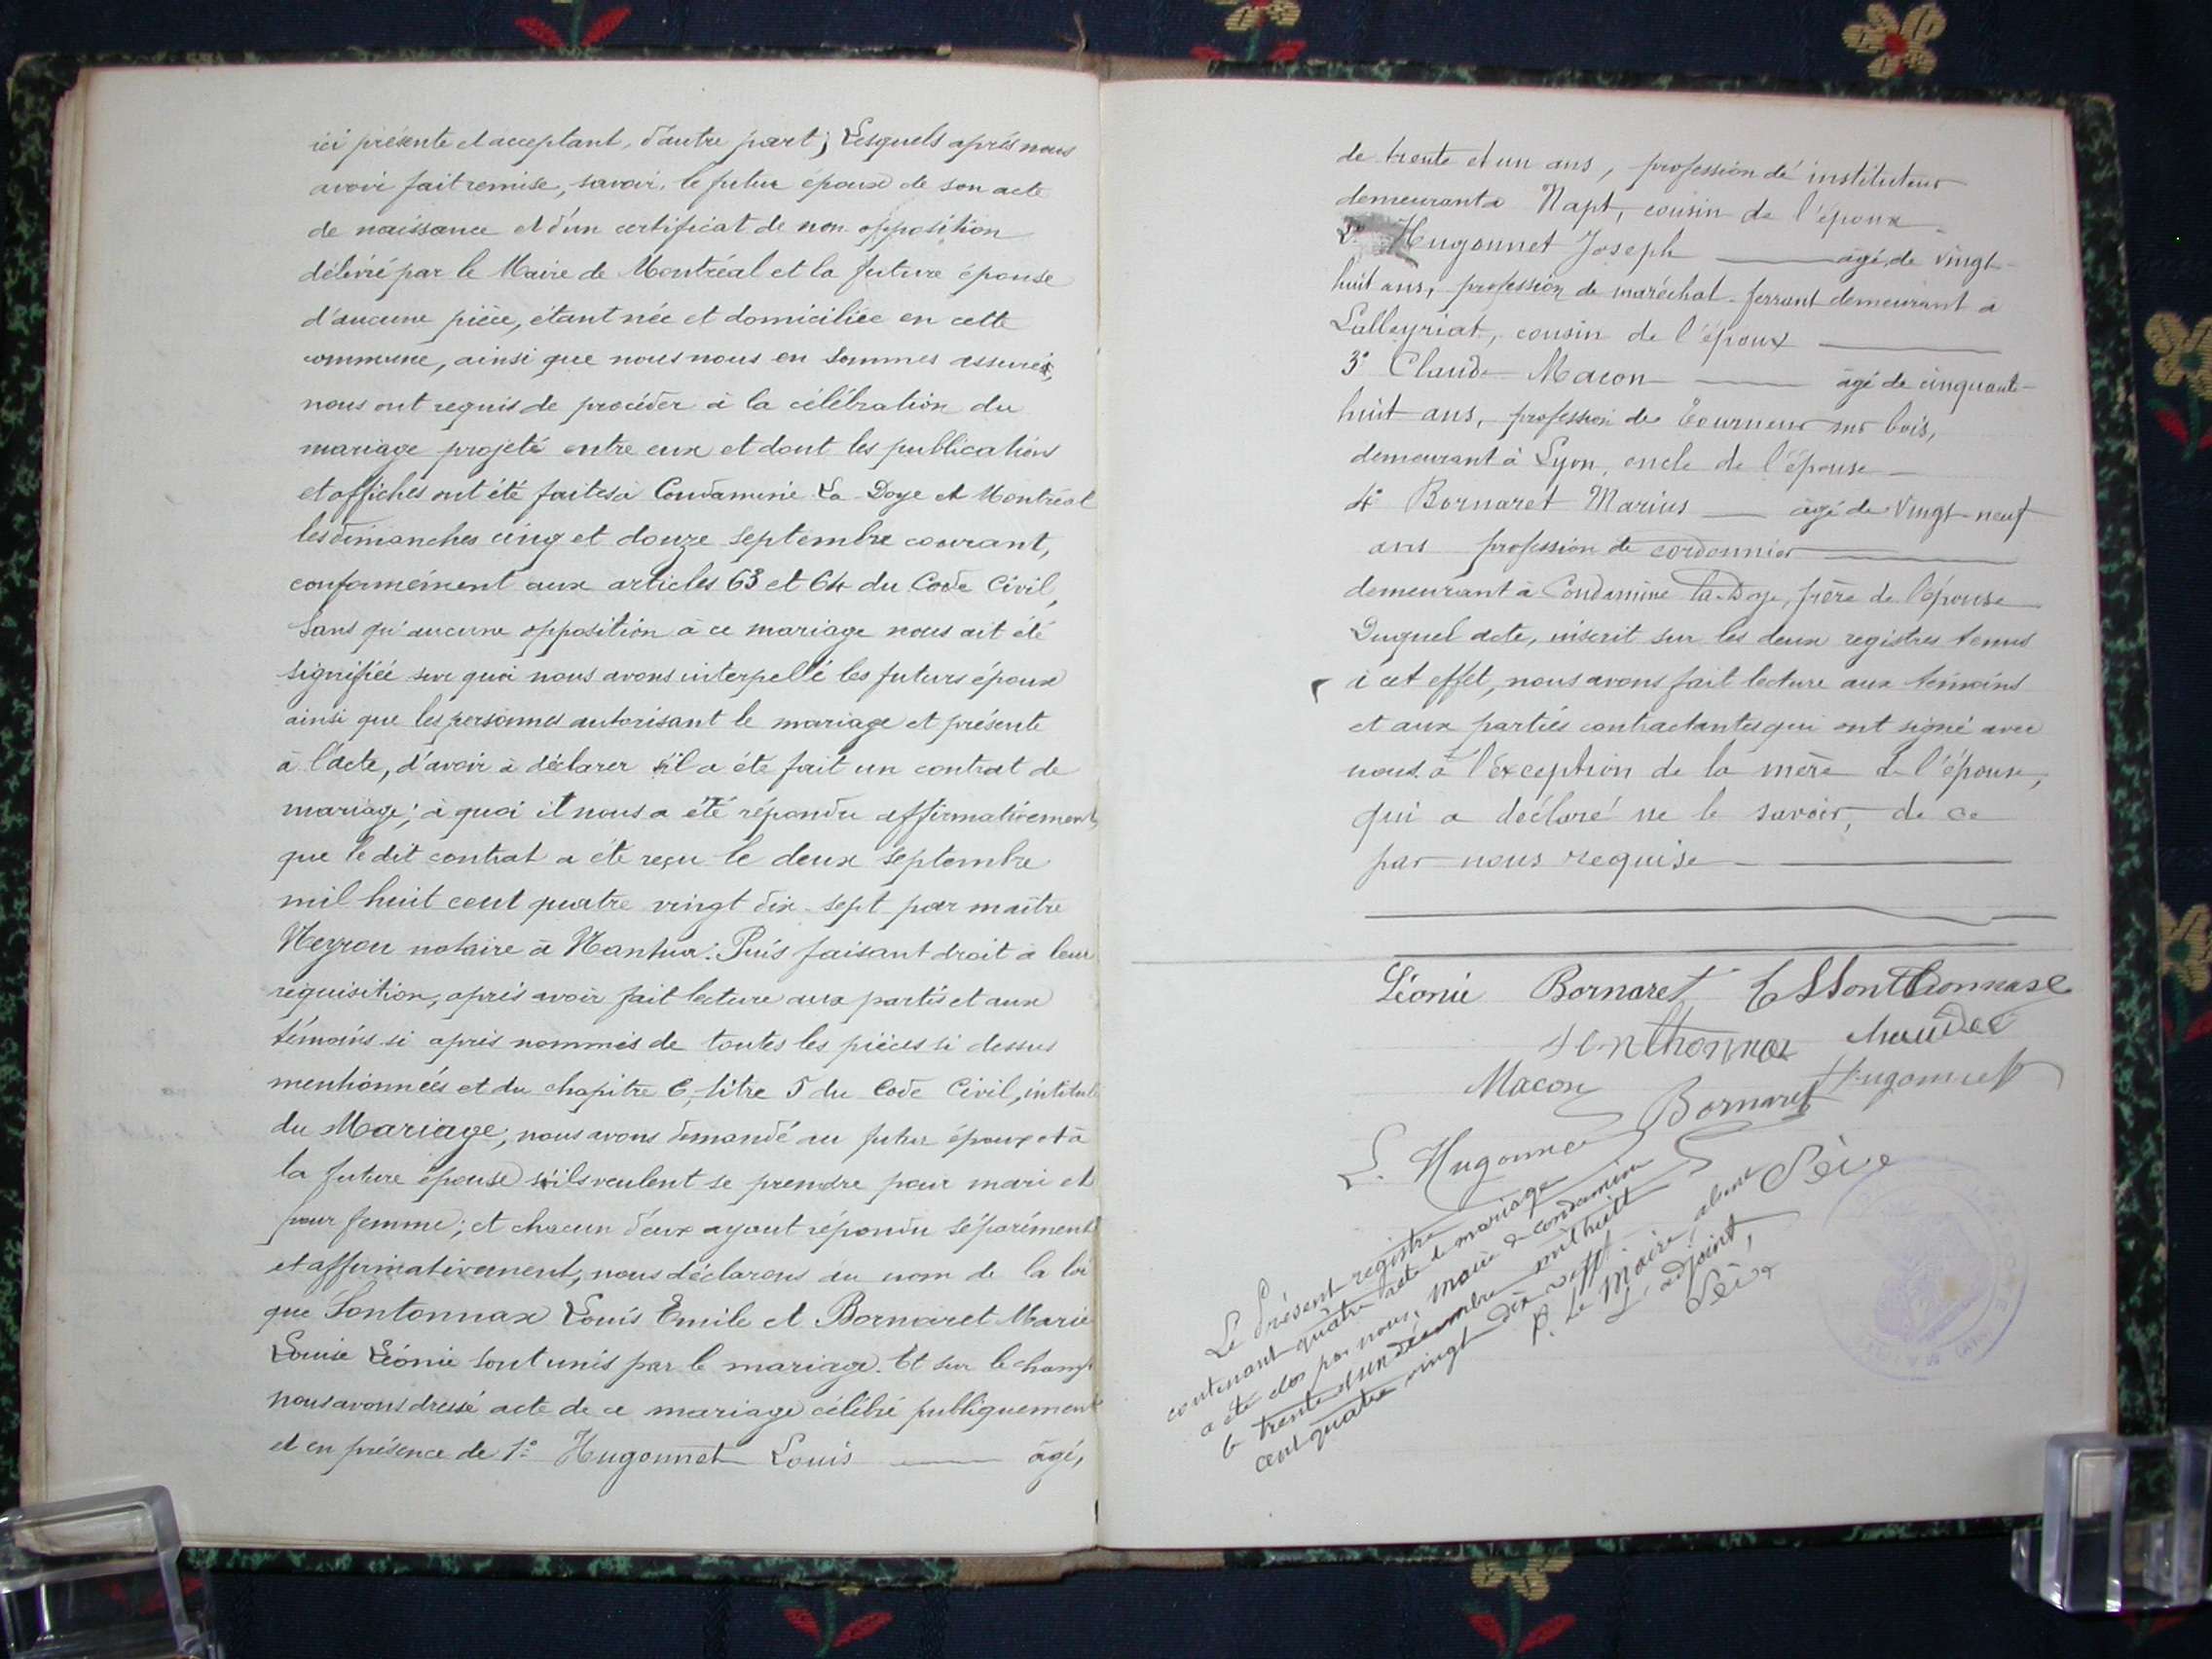 ici présente et acceptant, d'autre part; Lesquels après nous
avoir fait remise, savoir, le futur époux de son acte
de naissance et d'un certificat de non opposition
délivré par le Maire de Montréal et la future épouse
d'aucune pièce, étant née et domiciliée en cette
commune, ainsi que nous nous en sommes assurés,
nous ont requis de procéder à la célébration du
mariage projeté entre eux et dont les publications
et affiches ont été faites à Condamine La Doye et Montréal
les dimanches cinq et douze septembre courant,
conformément aux articles 63 et 64 du Code Civil,
sans qu'aucune opposition à ce mariage nous ait été
signifiée sur quoi nous avons interpellé les futurs époux
ainsi que les personnes autorisant le mariage et présente
à l'acte, d'avoir à déclarer s'il a été fait un contrat de
mariage; à quoi il nous a été répondu affirmativement,
que le dit contrat a été reçu le deux septembre
mil huit cent quatre vingt dix-sept par maître
Neyron notaire à Nantua. Puis faisant droit à leur
réquisition, après avoir fait lecture aux partis et aux
témoins si après nommés de toutes les pièces si dessus
mentionnées et du chapitre 6, titre 5 du Code Civil, intitulé
du Mariage, nous avons demandé au futur époux et à
la future épouse s'ils veulent se prendre pour mari et
pour femme; et chacun d'eux ayant répondu séparément
et affirmativement, nous déclarons au nom de la loi
que Sontonnax Louis Emile et Bornaret Marie
Louise Léonie sont unis par le mariage. Et sur le champ
nous avons dressé acte de ce mariage célébré publiquement
et en présence de 1° Hugonnet Louis âgé,
de trente et un ans, profession de instituteur
demeurant à Napt, cousin de l'époux
2° Hugonnet Joseph âgé de vingt-
huit ans, profession de maréchal-ferrant demeurant à
Lalleyriat, cousin de l'époux
3° Claude Macon âgé de cinquante-
huit ans, profession de Tourneur sur bois,
demeurant à Lyon, oncle de l'épouse
4° Bornaret Marius âgé de vingt-neuf
ans profession de cordonnier
demeurant à Condamine la-Doye, frère de l'épouse
Duquel acte, inscrit sur les deux registres tenus
à cet effet, nous avons fait lecture aux témoins
et aux parties contractantes qui ont signé avec
nous à l'exception de la mère de l'épouse,
qui a déclaré ne le savoir, de ce
par nous requise
Léonie Bornaret E Sonthonnax
Sonthonnax
Macon Bornaret Hugonnet
L. Hugonnet
Sève
Le Présent registre
contenant quatre acte de mariage
a été clos par nous, maire de Condamine
le trente et un décembre mil huit
cent quatre vingt dix sept
p. Le Maire absent
L'adjoint,
Sève